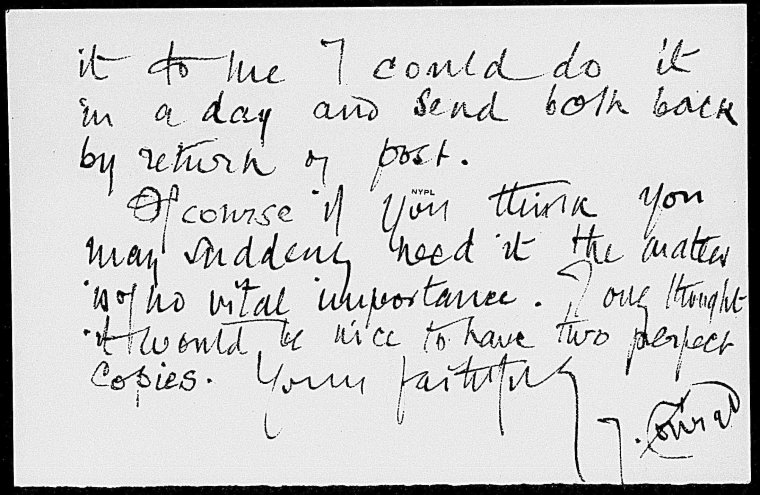 it to me I could do it
in a day and send both back
by return of post.
NYPL
Of course if you think you
may suddenly need it the matter
is of no vital importance. I only thought
it would be nice to have two perfect
copies. Yours faithfully
J. Conrad